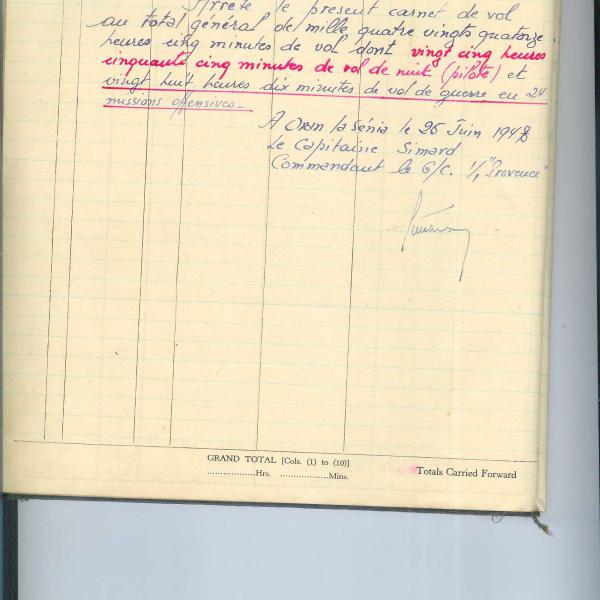 Arrêté le présent carnet de vol
au total général de mille quatre vingts quatorze
heures cinq minutes de vol dont vingt cinq heures
cinquante cinq minutes de vol de nuit (pilote) et
vingt huit heures dix minutes de vol de guerre en 24
missions offensives.
A Oran la Sénia le 26 Juin 1948
Le Capitaine Simard
Commandant le G/C. 1/1 "Provence"
GRAND TOTAL [Cols. (1) to (10)]
..................Hrs. ..................Mins.
Totals Carried Forward